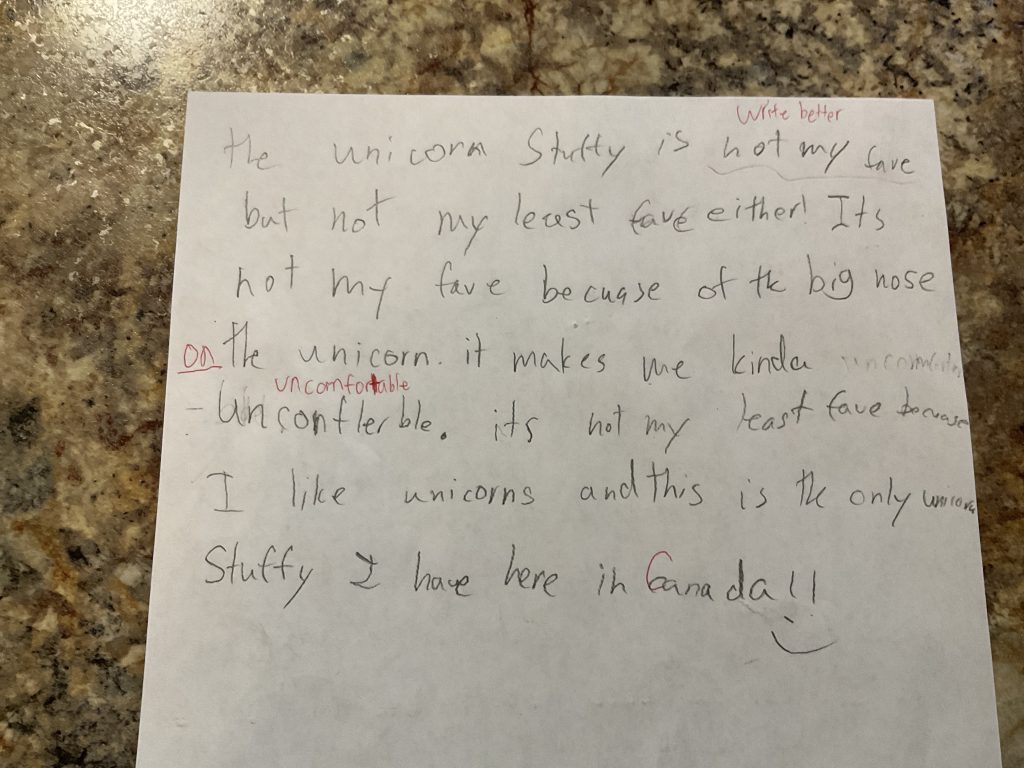 Write better
the unicorn Stuffy is not my fave
but not my least fave either! Its
not my fave becuase of the big nose
on the unicorn. it makes me kinda
uncomfortable
- Unconflerble. its not my least fave becuase
I like unicorns and this is the only unicorn
Stuffy I have here in Canada!!